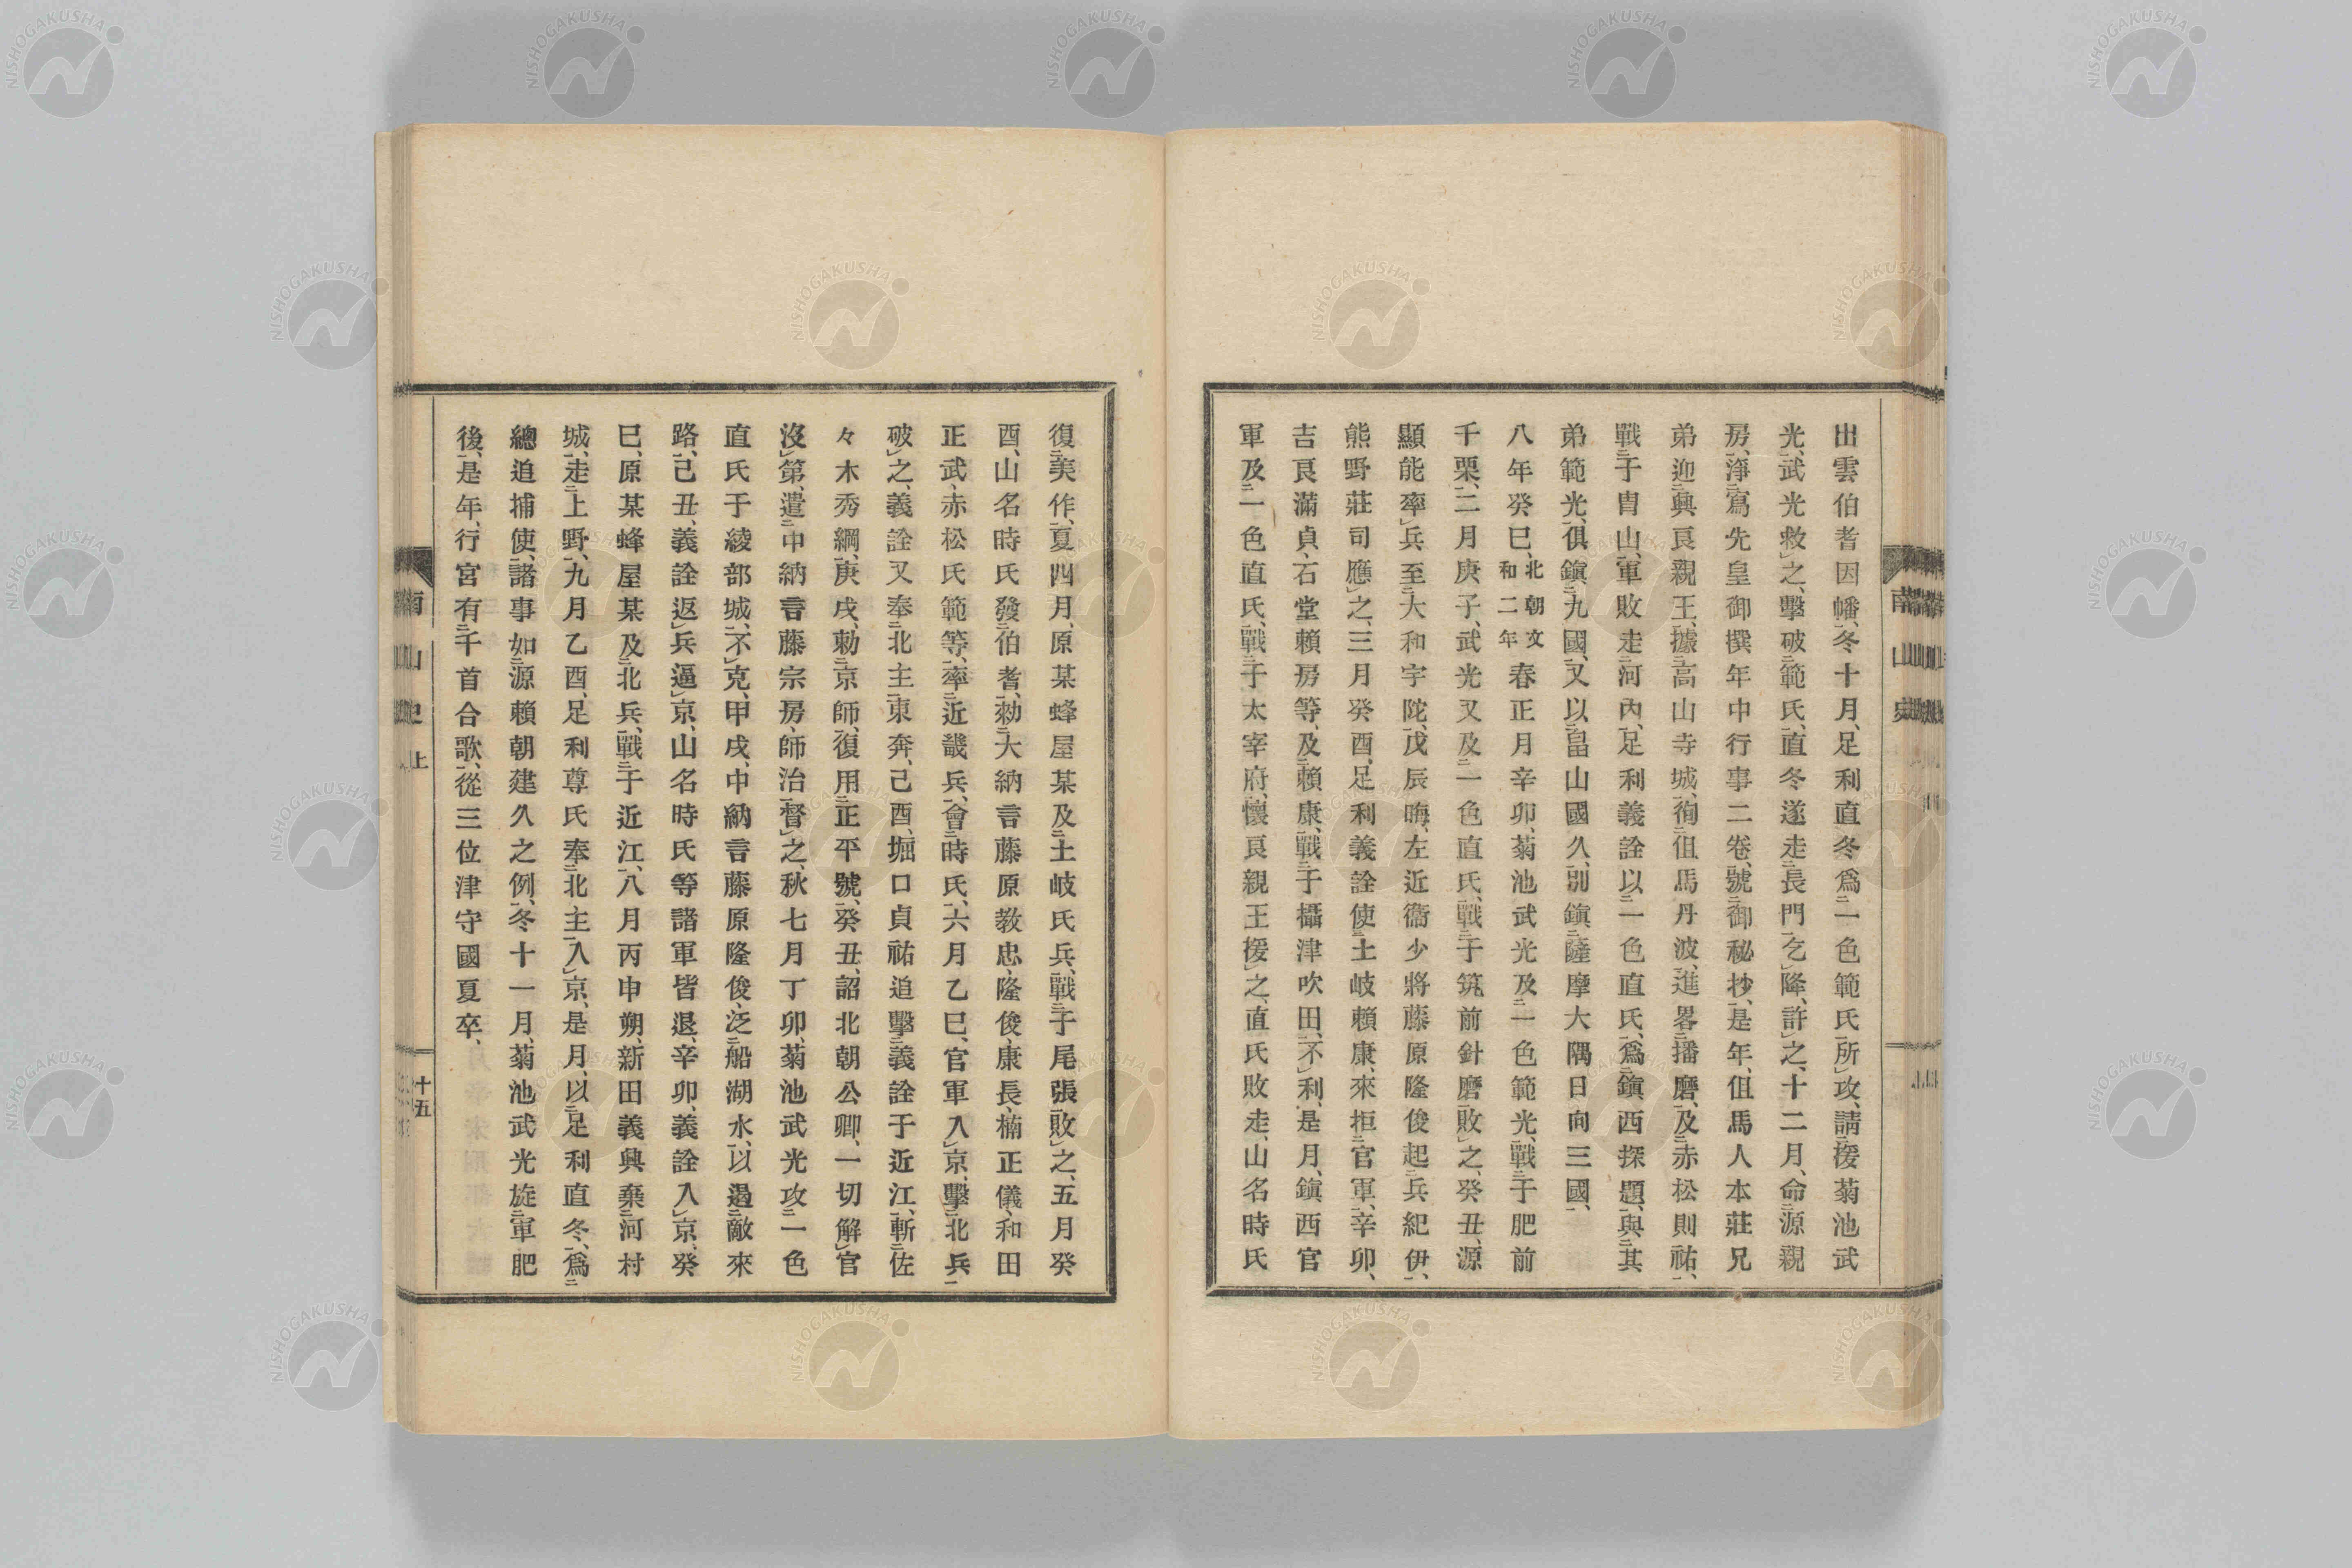 出雲伯耆因幡、冬十月、足利直冬爲一色範氏所攻、請援菊池武
光、武光救之、擊破範氏、直冬遂走長門、乞降、許之、十二月、命源親
房、淨寫先皇御撰年中行事二卷、號御秘抄、是年、伹馬人本莊兄
弟迎興良親王、據高山寺城、徇伹馬丹波、進畧播磨、及赤松則祐、
戰于冑山、軍敗走河內、足利義詮以一色直氏、爲鎭西探題、與其
弟範光、俱鎭九國、又以畠山國久、別鎭薩摩大隅日向三國、
八年癸巳、北朝文和二年春正月辛卯、菊池武光及一色範光、戰于肥前
千栗、二月庚子、武光又及一色直氏、戰于筑前針磨、敗之、癸丑、源
顯能率兵至大和宇陀、戊辰晦、左近衞少將藤原隆俊起兵紀伊、
熊野莊司應之、三月癸酉、足利義詮使土岐賴康、來拒官軍、辛卯、
吉良滿貞、石堂賴房等、及賴康、戰于攝津吹田、不利、是月、鎭西官
軍及一色直氏、戰于太宰府、懷良親王援之、直氏敗走、山名時氏
復美作、夏四月、原某蜂屋某及土岐氏兵、戰于尾張、敗之、五月癸
酉、山名時氏發伯耆、勑大納言藤原敎忠、隆俊、康長、楠正儀、和田
正武、赤松氏範等、率近畿兵、會時氏、六月乙巳、官軍入京、擊北兵
破之、義詮又奉北主東奔、己酉、堀口貞祐追擊義詮于近江、斬佐
々木秀綱、庚戌、勑京師、復用正平號、癸丑、詔北朝公卿、一切解官
沒第、遣中納言藤宗房、師治督之、秋七月丁卯、菊池武光攻一色
直氏于綾部城、不克、甲戌、中納言藤原隆俊、泛船湖水、以遏敵來
路、己丑、義詮返兵逼京、山名時氏等諸軍皆退、辛卯、義詮入京、癸
巳、原某蜂屋某及北兵、戰于近江、八月丙申朔、新田義興棄河村
城、走上野、九月乙酉、足利尊氏奉北主入京、是月、以足利直冬、爲
總追捕使、諸事如源賴朝建久之例、冬十一月、菊池武光旋軍肥
後、是年、行宮有千首合歌、從三位津守國夏卒、
南山史 上
十五